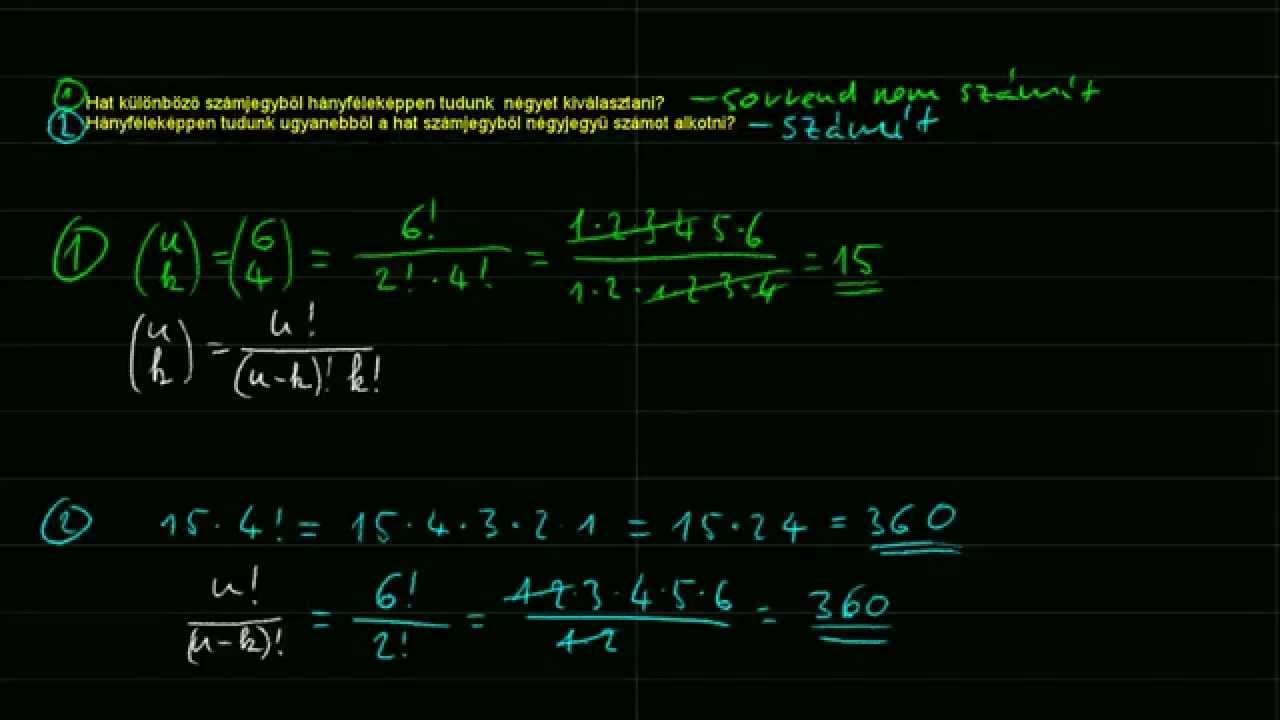 ① Hat különböző számjegyből hányféleképpen tudunk négyet kiválasztani? – sorrend nem számít
② Hányféleképpen tudunk ugyanebből a hat számjegyből négyjegyű számot alkotni? – számít
① (n k) = (6 4) = 6! / (2! · 4!) = (1·2·3·4·5·6) / (1·2·1·2·3·4) = 15
(n k) = n! / ((n-k)! k!)
② 15 · 4! = 15 · 4 · 3 · 2 · 1 = 15 · 24 = 360
n! / (n-k)! = 6! / 2! = (1·2·3·4·5·6) / (1·2) = 360